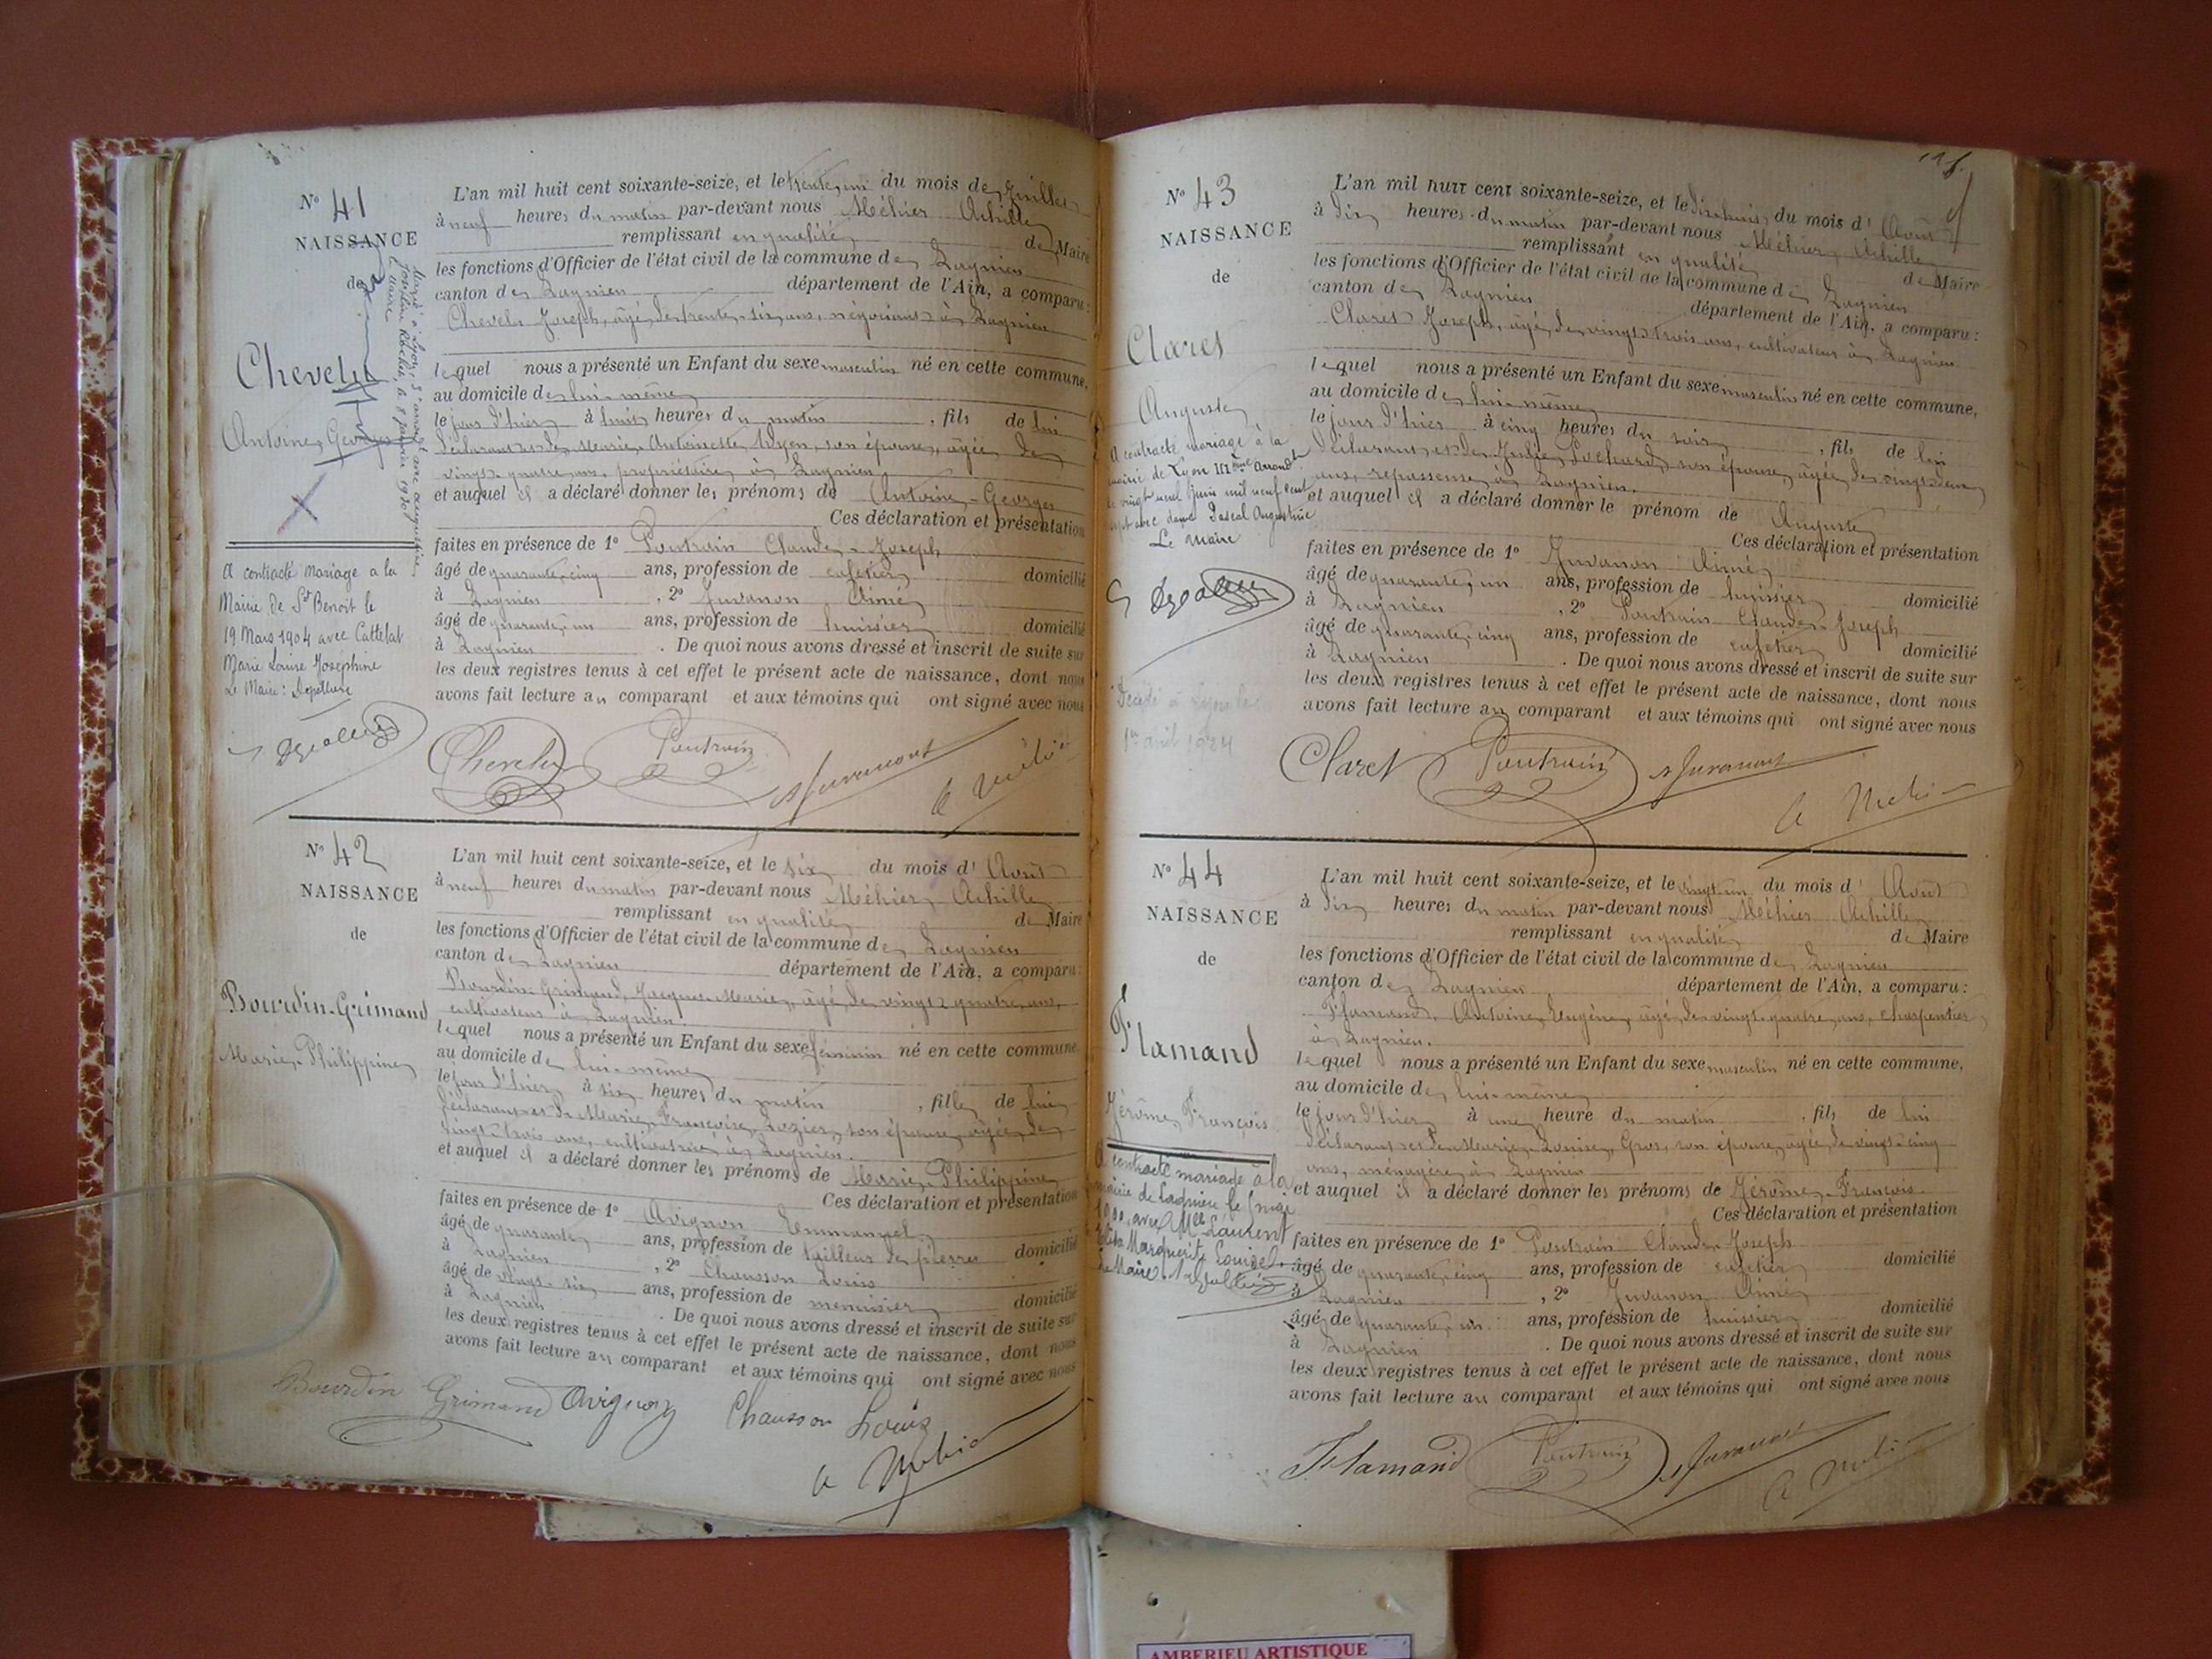 N° 41
NAISSANCE
de
Chevelu
Antoine-Georges
Marié à Lyon, 5e arrondt
Rochet, le 8 janvier 1908
A contracté mariage à la
Mairie de St Benoit le
19 Mars 1904 avec Cattelat
Marie Louise Joséphine
Le Maire:
L'an mil huit cent soixante-seize, et le trente-un du mois de Juillet
à neuf heures du matin par-devant nous Méhier Achille
remplissant en qualité de Maire
les fonctions d'Officier de l'état civil de la commune de Lagnieu
canton de Lagnieu département de l'Ain, a comparu:
Chevelu Joseph, âgé de trente-six ans, négociant à Lagnieu
lequel nous a présenté un Enfant du sexe masculin né en cette commune,
au domicile de lui-même
le jour d'hier à huit heures du matin, fils de lui
déclarant et de Marie Antoinette son épouse, âgée de
vingt-quatre ans, propriétaire, à Lagnieu
et auquel il a déclaré donner les prénoms de Antoine-Georges
Ces déclaration et présentation
faites en présence de 1° Poutrain Claude-Joseph
âgé de quarante-cinq ans, profession de cafetier domicilié
à Lagnieu, 2° Juvanon Aimé
âgé de quarante-un ans, profession de huissier domicilié
à Lagnieu. De quoi nous avons dressé et inscrit de suite sur
les deux registres tenus à cet effet le présent acte de naissance, dont nous
avons fait lecture au comparant et aux témoins qui ont signé avec nous
Chevelu Poutrain A Juvanon A Méhier
N° 42
NAISSANCE
de
Bourdin-Grimaud
Marie-Philippine
L'an mil huit cent soixante-seize, et le six du mois d'Août
à neuf heures du matin par-devant nous Méhier Achille
remplissant en qualité de Maire
les fonctions d'Officier de l'état civil de la commune de Lagnieu
canton de Lagnieu département de l'Ain, a comparu:
Bourdin-Grimaud, Jacques-Marie, âgé de vingt-quatre ans,
cultivateur à Lagnieu.
lequel nous a présenté un Enfant du sexe féminin né en cette commune,
au domicile de lui-même
le jour d'hier à six heures du matin, fille de lui
déclarant et de Marie Françoise Lozier, son épouse, âgée de
vingt-trois ans, cultivatrice, à Lagnieu.
et auquel il a déclaré donner les prénoms de Marie-Philippine
Ces déclaration et présentation
faites en présence de 1° Avignon Emmanuel
âgé de quarante ans, profession de tailleur de pierres domicilié
à Lagnieu, 2° Chausson Louis
âgé de vingt-six ans, profession de menuisier domicilié
à Lagnieu. De quoi nous avons dressé et inscrit de suite sur
les deux registres tenus à cet effet le présent acte de naissance, dont nous
avons fait lecture au comparant et aux témoins qui ont signé avec nous
Bourdin Grimaud Avignon Chausson Louis
A Méhier
N° 43
NAISSANCE
de
Claret
Auguste
A contracté mariage à la
mairie de Lyon IIIème Arrondt
le vingt neuf Juin mil neuf cent
sept avec dame Pascal Augustine
Le Maire
Décédé à
1er avril 1924
L'an mil huit cent soixante-seize, et le dix-huit du mois d'Août
à dix heures du matin par-devant nous Méhier Achille
remplissant en qualité de Maire
les fonctions d'Officier de l'état civil de la commune de Lagnieu
canton de Lagnieu département de l'Ain, a comparu:
Claret Joseph, âgé de vingt-trois ans, cultivateur à Lagnieu
lequel nous a présenté un Enfant du sexe masculin né en cette commune,
au domicile de lui-même
le jour d'hier à cinq heures du soir, fils de lui
déclarant et de Julie Pochard, son épouse, âgée de vingt-deux
ans, repasseuse, à Lagnieu.
et auquel il a déclaré donner le prénom de Auguste
Ces déclaration et présentation
faites en présence de 1° Juvanon Aimé
âgé de quarante-un ans, profession de huissier domicilié
à Lagnieu, 2° Poutrain Claude-Joseph
âgé de quarante-cinq ans, profession de cafetier domicilié
à Lagnieu. De quoi nous avons dressé et inscrit de suite sur
les deux registres tenus à cet effet le présent acte de naissance, dont nous
avons fait lecture au comparant et aux témoins qui ont signé avec nous
Claret Poutrain A Juvanon A Méhier
N° 44
NAISSANCE
de
Flamand
Jérôme François
A contracté mariage à la
mairie de Lagnieu le 5 mai
1900 avec Melle Laurent
Marguerite Louise.
Le Maire.
L'an mil huit cent soixante-seize, et le vingt-un du mois d'Août
à dix heures du matin par-devant nous Méhier Achille
remplissant en qualité de Maire
les fonctions d'Officier de l'état civil de la commune de Lagnieu
canton de Lagnieu département de l'Ain, a comparu:
Flamand, Antoine Eugène, âgé de vingt-quatre ans, charpentier
à Lagnieu.
lequel nous a présenté un Enfant du sexe masculin né en cette commune,
au domicile de lui-même
le jour d'hier à une heure du matin, fils de lui
déclarant et de Marie-Louise Gros, son épouse, âgée de vingt-cinq
ans, ménagère, à Lagnieu
et auquel il a déclaré donner les prénoms de Jérôme-François
Ces déclaration et présentation
faites en présence de 1° Poutrain Claude-Joseph
âgé de quarante-cinq ans, profession de cafetier domicilié
à Lagnieu, 2° Juvanon Aimé
âgé de quarante-un ans, profession de huissier domicilié
à Lagnieu. De quoi nous avons dressé et inscrit de suite sur
les deux registres tenus à cet effet le présent acte de naissance, dont nous
avons fait lecture au comparant et aux témoins qui ont signé avec nous
Flamand Poutrain A Juvanon A Méhier
AMBERIEU ARTISTIQUE